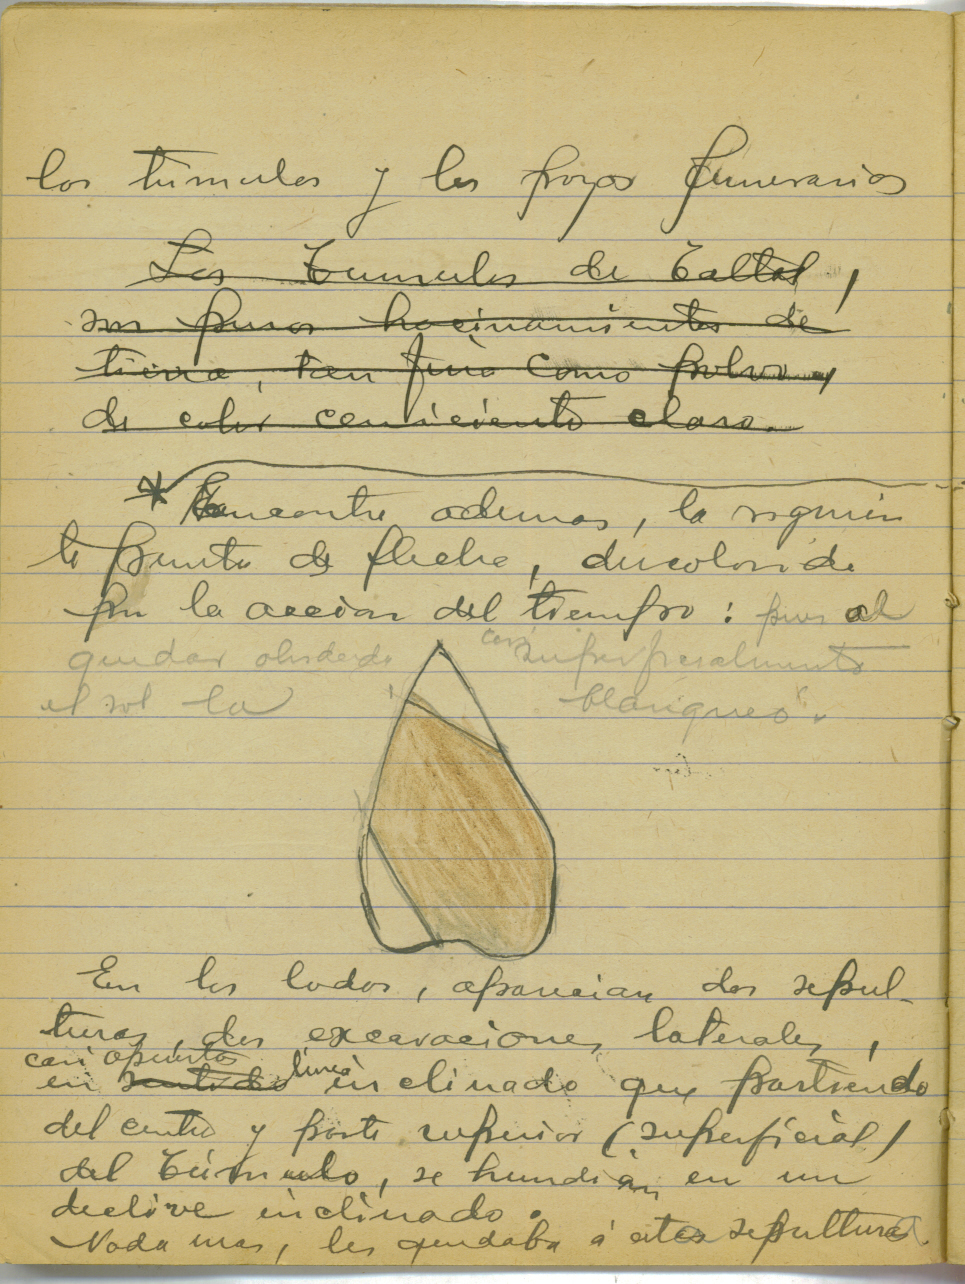 los túmulos y los pozos funerarios
Los Tumulos de Taltal,
son puros hacinamientos de
tierra, tan fina como polvo,
de color ceniciento claro.
* Encontre ademas, la siguien
te punta de flecha, descolorida
por la accion del tiempo: pues al
quedar olvidada casi superficialmente
el sol la blanqueó.
En los lados, aparecian dos sepul-
turas, dos excavaciones laterales,
casi opuestas
en sentido linea inclinado que partiendo
del centro y parte superior (superficial)
del Túmulo, se hundian en un
declive inclinado.
Nada mas, les quedaba á estas sepulturas.